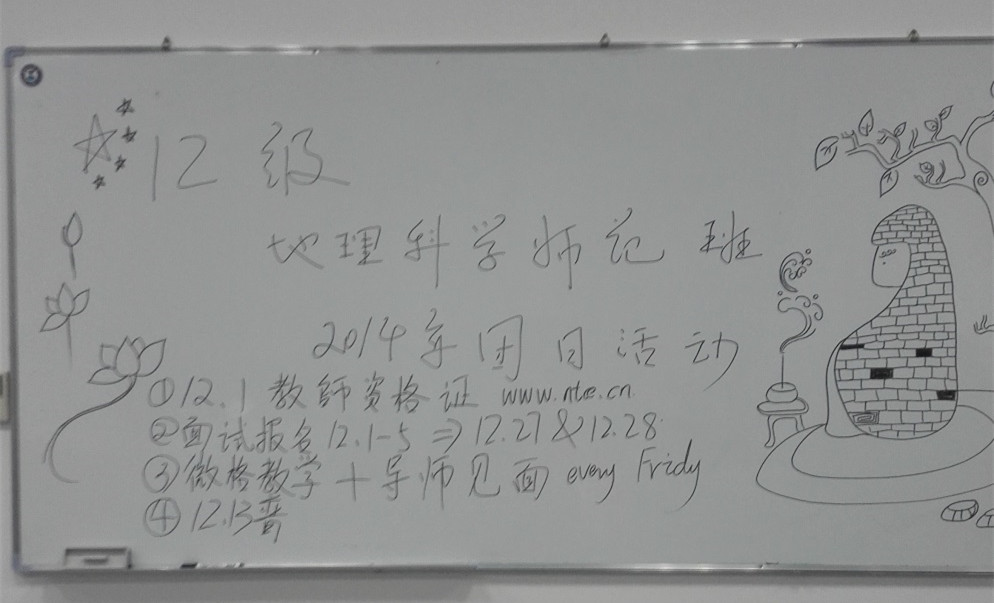 12 级
地理科学师范班
2014年团日活动
①12.1 教師资格证 www.nte.cn
②面试报名12.1-5 ⇒ 12.27&12.28
③微格教学+导师见面 every Fridy
④12.13晋